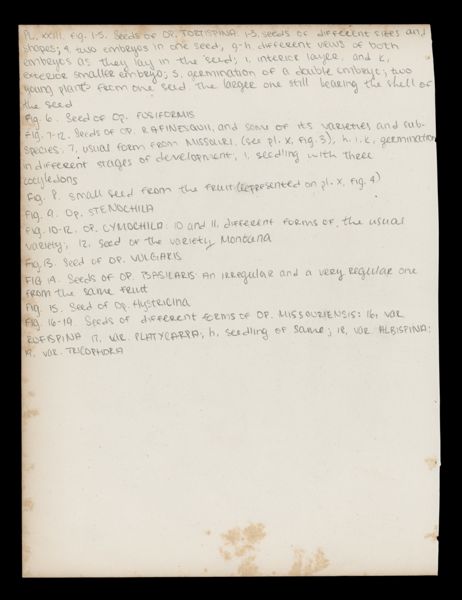 PL. XXIII. Fig. 1-5. Seeds of OP. TORTISPINA. 1-3. seeds of different sizes and
shapes; 4. two embryos in one seed, g-h. different views of both
embryos as they lay in the seed; i, interior layer, and k,
exterior smaller embryo; 5. germination of a double embryo; two
young plants from one seed the larger one still bearing the shell of
the seed
Fig. 6. Seed of Op. FUSIFORMIS
Fig. 7-12. Seeds of OP. RAFINESQUII, and some of its varieties and sub-
species. 7, usual form from MISSOURI. (see pl. X, Fig. 3), h. i. k, germination
in different stages of development; l. seedling with three
cocyledons
Fig. 8. small seed from the fruit (represented on pl. X, Fig. 4)
Fig. 9. Op. STENOCHILA
Fig. 10-12. OP. CYMOCHILA. 10 and 11. different forms of the usual
variety; 12. Seed of the variety
Fig. 13. Seed of OP. VULGARIS
FIG 14. Seeds of OP. BASILARIS An irregular and a very regular one
from the same fruit
Fig. 15. Seed of Op. Hystricina
Fig. 16-19. Seeds of different forms of OP. MISSOURIENSIS: 16, var
RUFISPINA 17, VAR. PLATYCARPA; h, seedling of same; 18, var. ALBISPINA;
19. var. TRICOPHORA